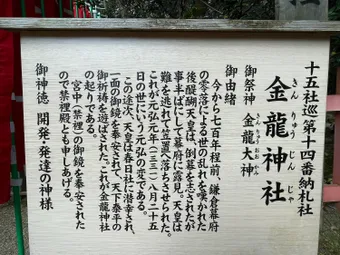 十五社巡第十四番納札社
金龍神社
きんりゅうじんじゃ
御祭神 金龍大神
きんりゅうおおかみ
御由緒
今から七百年程前、鎌倉幕府
の零落による世の乱れを嘆かれた
後醍醐天皇は、倒幕を志されたが
事半ばにして幕府に露見、天皇は
難を逃れて笠置へ落ちさせられた。
これが元弘元年(一三三一)八月二十五
日の世にいう元弘の変である。
この途次、天皇は春日社に潜幸され、
一面の御鏡を奉安されて、天下泰平の
御祈祷を遊ばされた。これが金龍神社
の起りである。
宮中(禁裡)の御鏡を奉安された
ので禁裡殿とも申しあげる。
御神徳 開発・発達の神様